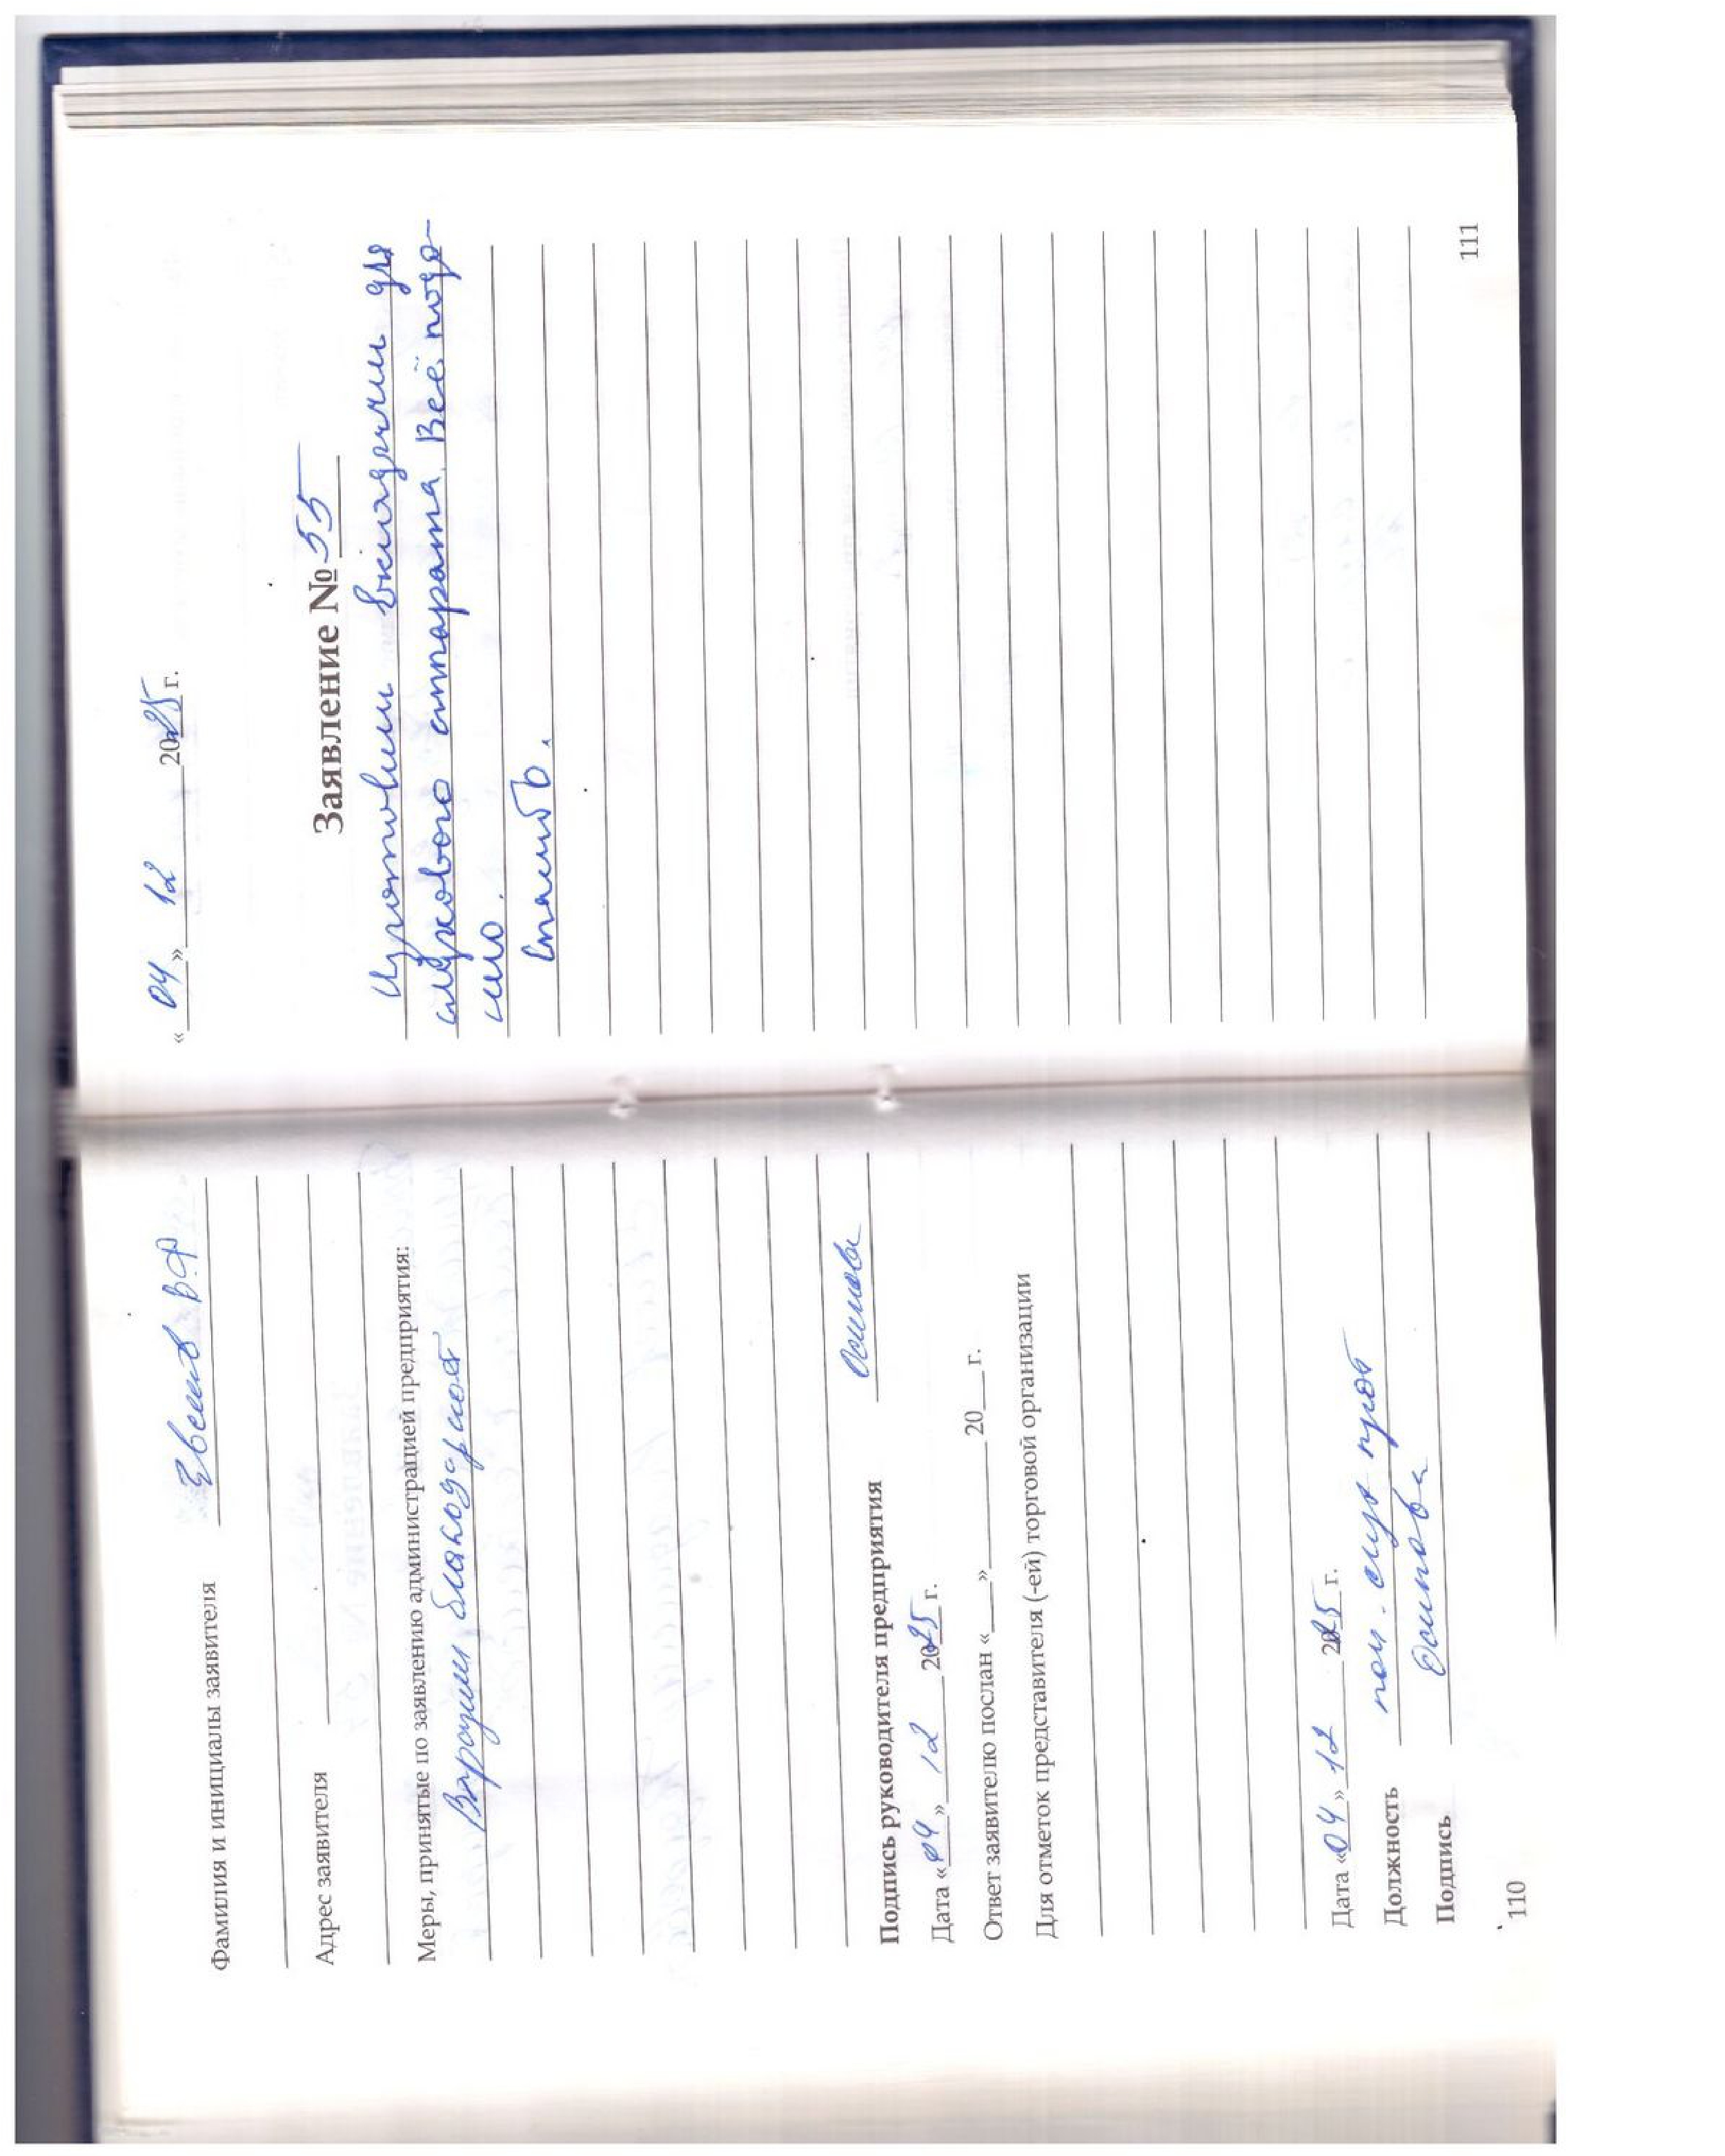 Фамилия и инициалы заявителя Евсеев В.Ф
Адрес заявителя
Меры, принятые по заявлению администрацией предприятия:
Выразили благодарность
Подпись руководителя предприятия Осипова
Дата «04» 12 2025 г.
Ответ заявителю послан «___» ______ 20__ г.
Для отметок представителя (-ей) торговой организации
Дата «04» 12 2025 г.
Должность
Подпись Осипова
110
«04» 12 2025 г.
Заявление № 55
Изготовили вкладыши для
слухового аппарата. Всё подо-
шло.
Спасибо.
111